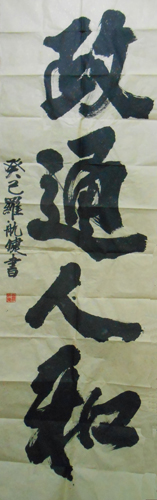 政通人和
癸巳羅帆健書